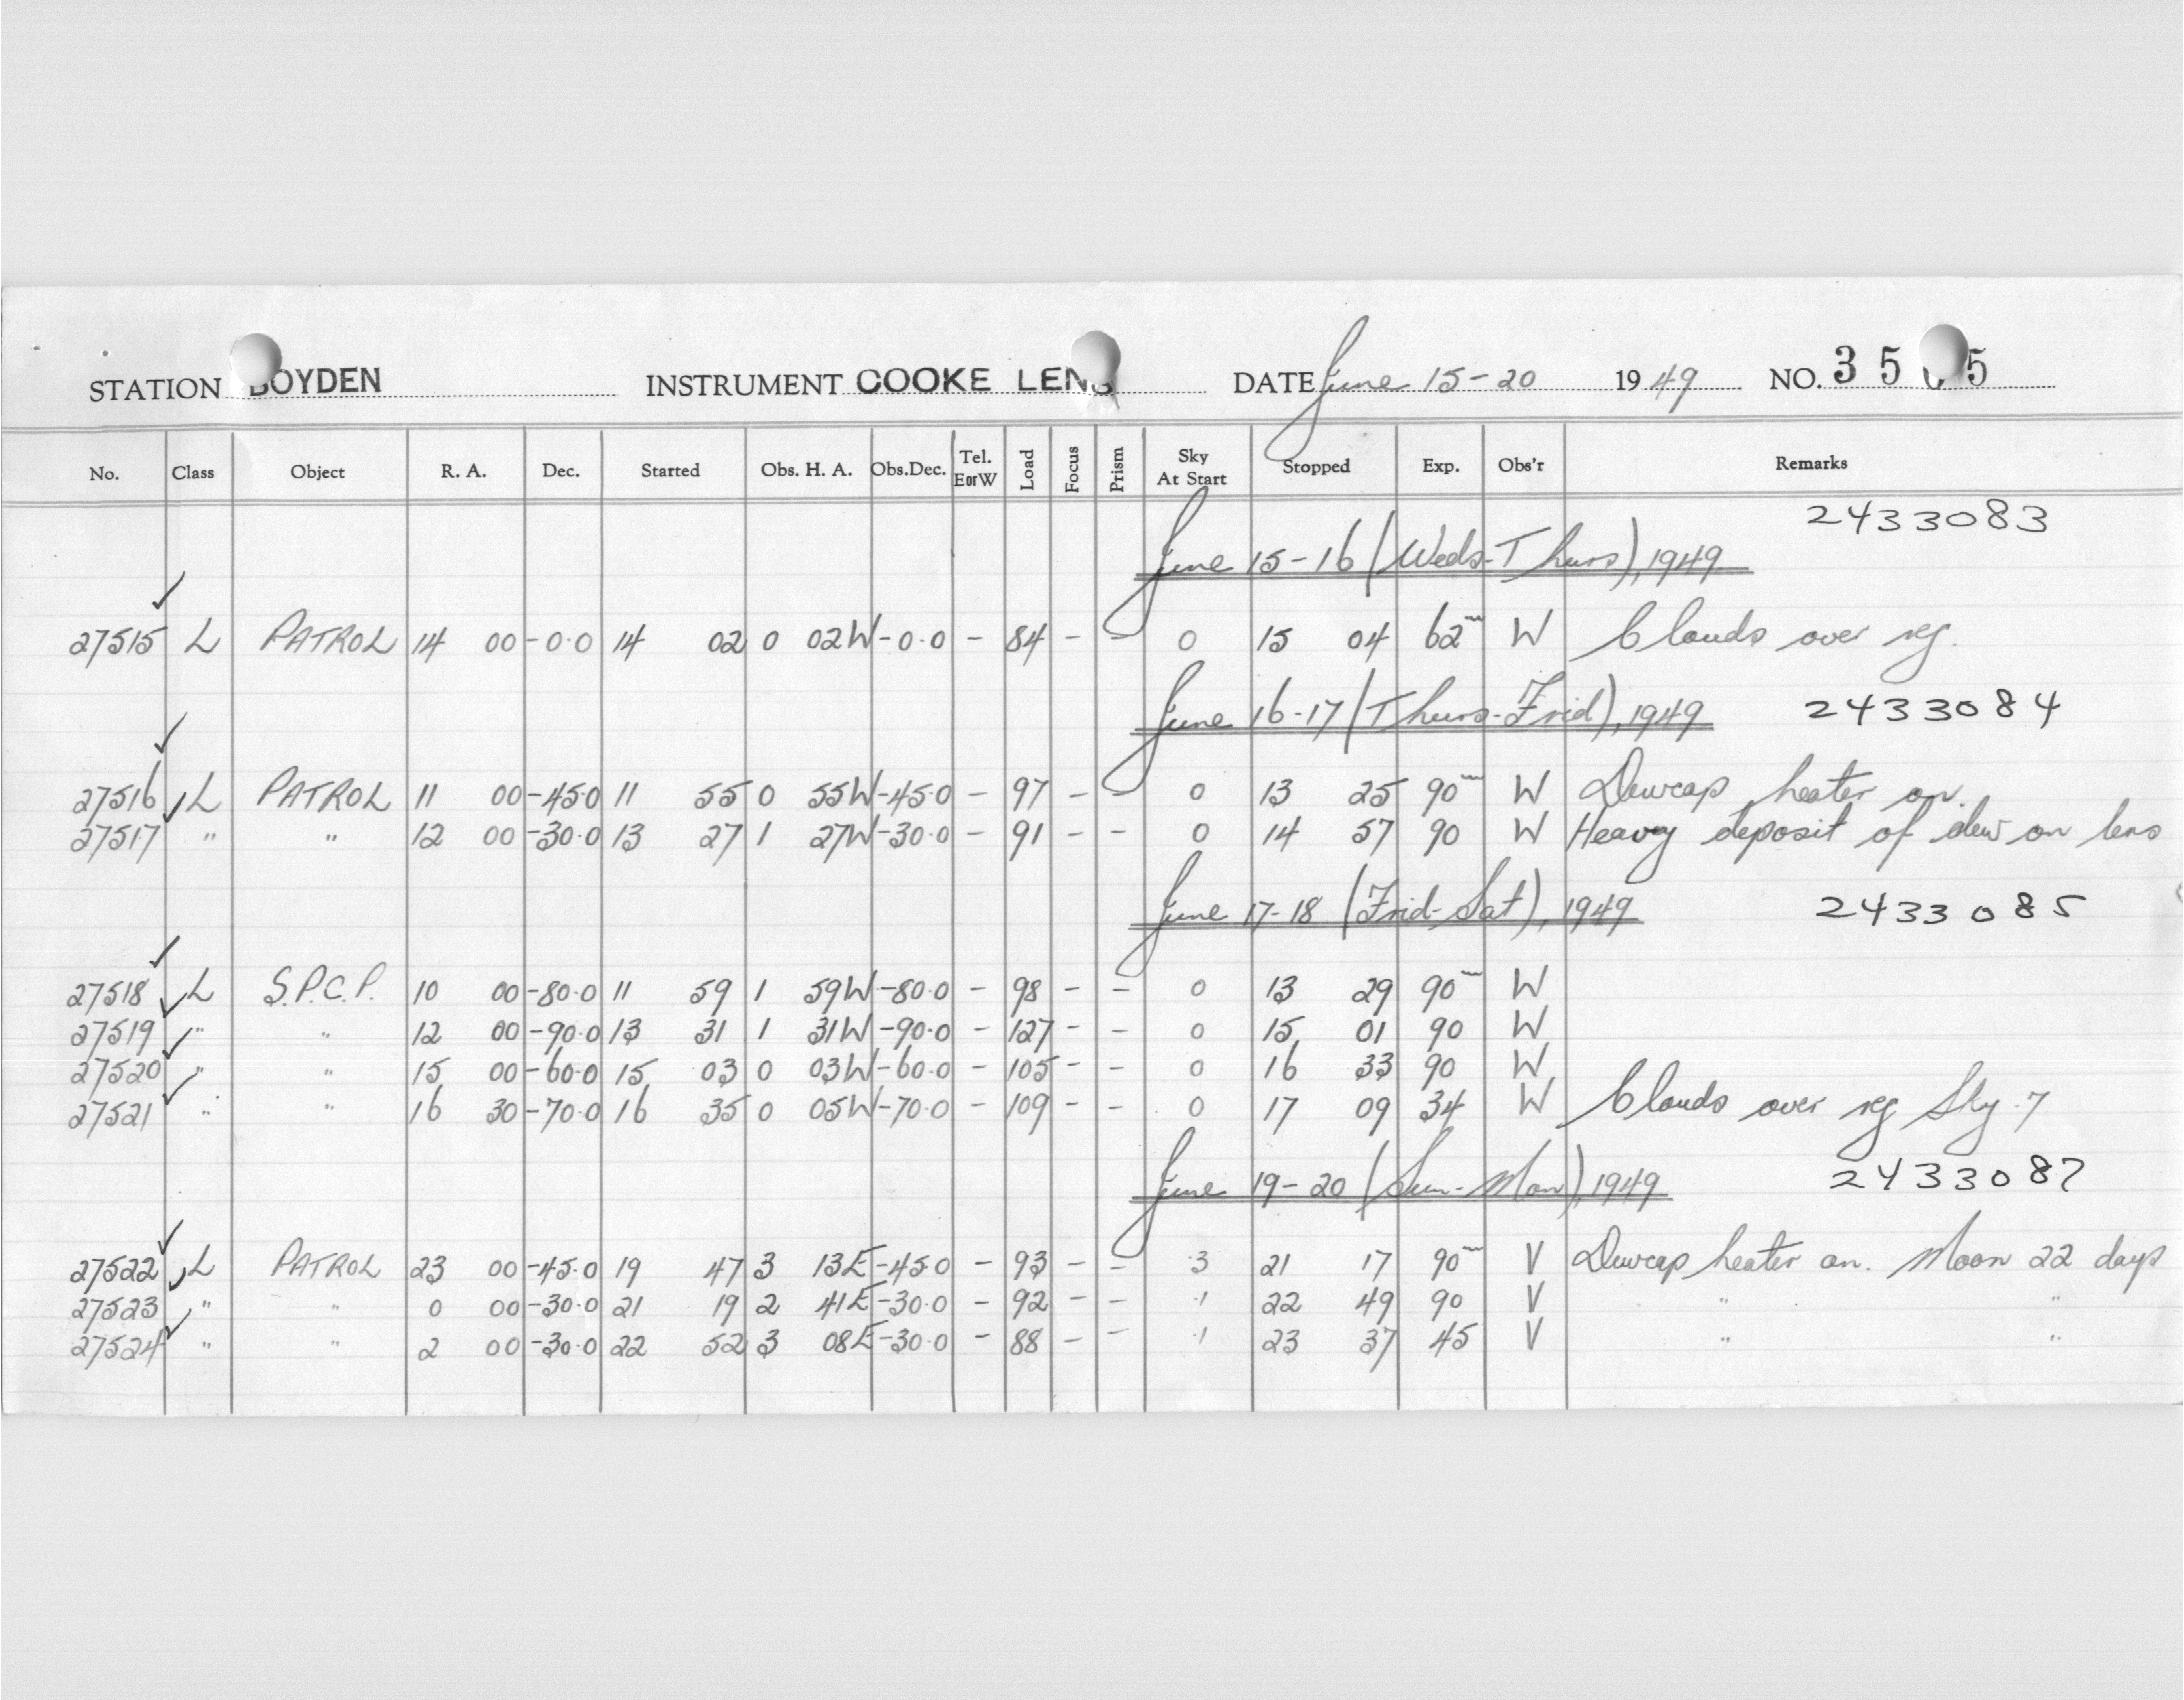 STATION BOYDEN INSTRUMENT COOKE LENS DATE June 15-20 1949 NO. 35 5
No. Class Object R. A. Dec. Started Obs. H. A. Obs.Dec. Tel. E or W Load Focus Prism Sky At Start Stopped Exp. Obs'r Remarks
2433083
June 15-16 (Weds-Thurs), 1949
27515 L PATROL 14 00 -0.0 14 02 0 02W -0.0 - 84 - - 0 15 04 62m W Clouds over reg.
June 16-17 (Thurs-Frid), 1949 2433084
27516 L PATROL 11 00 -45.0 11 55 0 55W -45.0 - 97 - - 0 13 25 90m W Dewcap heater on.
27517 " " 12 00 -30.0 13 27 1 27W -30.0 - 91 - - 0 14 57 90 W Heavy deposit of dew on lens
June 17-18 (Frid-Sat), 1949 2433085
27518 L S.P.C.P. 10 00 -80.0 11 59 1 59W -80.0 - 98 - - 0 13 29 90m W
27519 " " 12 00 -90.0 13 31 1 31W -90.0 - 127 - - 0 15 01 90 W
27520 " " 15 00 -60.0 15 03 0 03W -60.0 - 105 - - 0 16 33 90 W
27521 " " 16 30 -70.0 16 35 0 05W -70.0 - 109 - - 0 17 09 34 W Clouds over reg Sky .7
June 19-20 (Sun-Mon), 1949 2433087
27522 L PATROL 23 00 -45.0 19 47 3 13E -45.0 - 93 - - .3 21 17 90m V Dewcap heater on. Moon 22 days
27523 " " 0 00 -30.0 21 19 2 41E -30.0 - 92 - - .1 22 49 90 V " "
27524 " " 2 00 -30.0 22 52 3 08E -30.0 - 88 - - .1 23 37 45 V " "